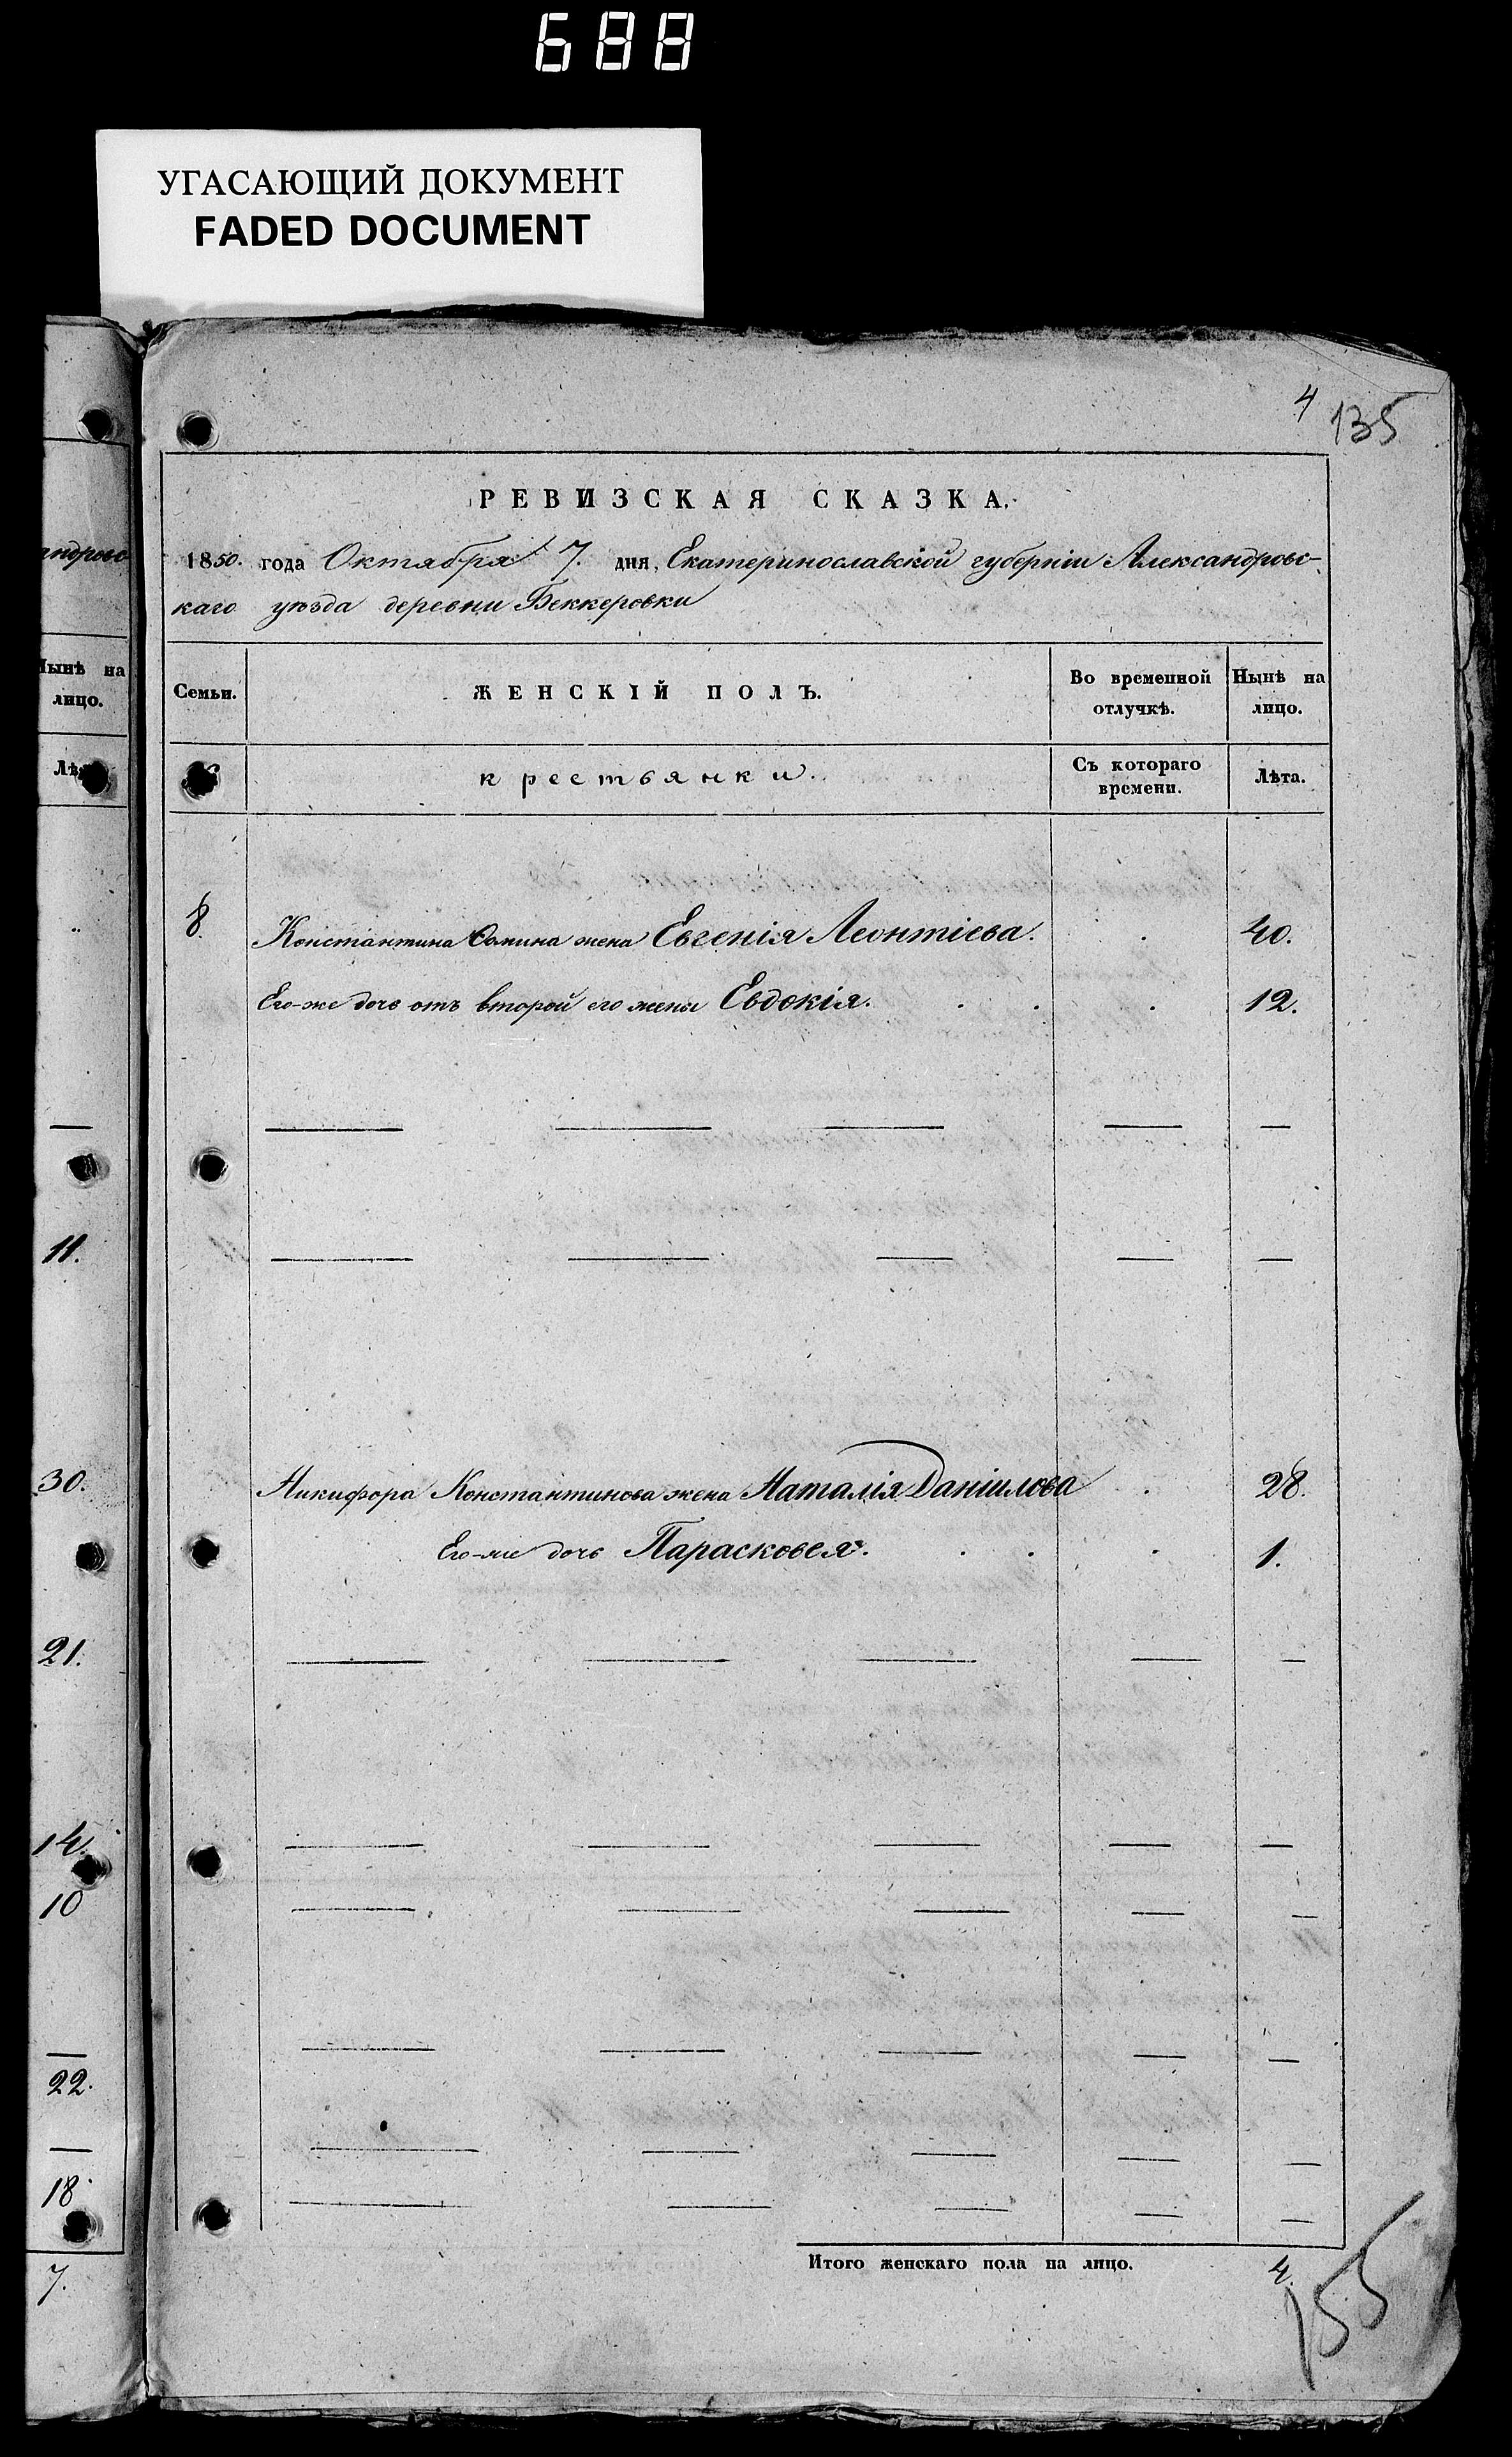 688
УГАСАЮЩИЙ ДОКУМЕНТ
FADED DOCUMENT
4
135
РЕВИЗСКАЯ СКАЗКА.
1850. года Октября 7. дня, Екатеринославской губерніи Александровс-
каго уѣзда деревни Беккеровки
андровс-
Нынѣ на
лицо.
Семьи.
ЖЕНСКІЙ ПОЛЪ.
Во временной
отлучкѣ.
Нынѣ на
лицо.
крестьянки.
Съ котораго
времени.
Лѣта.
8. Константина Фомина жена Евгенія Леонтіева. 40.
Его-же дочь отъ второй его жены Евдокія. 12.
11.
30.
Никифора Константинова жена Наталія Даніилова 28.
Его-же дочь Парасковея. 1.
21.
14.
10
22.
18.
7.
Итого женскаго пола на лицо. 4.
155